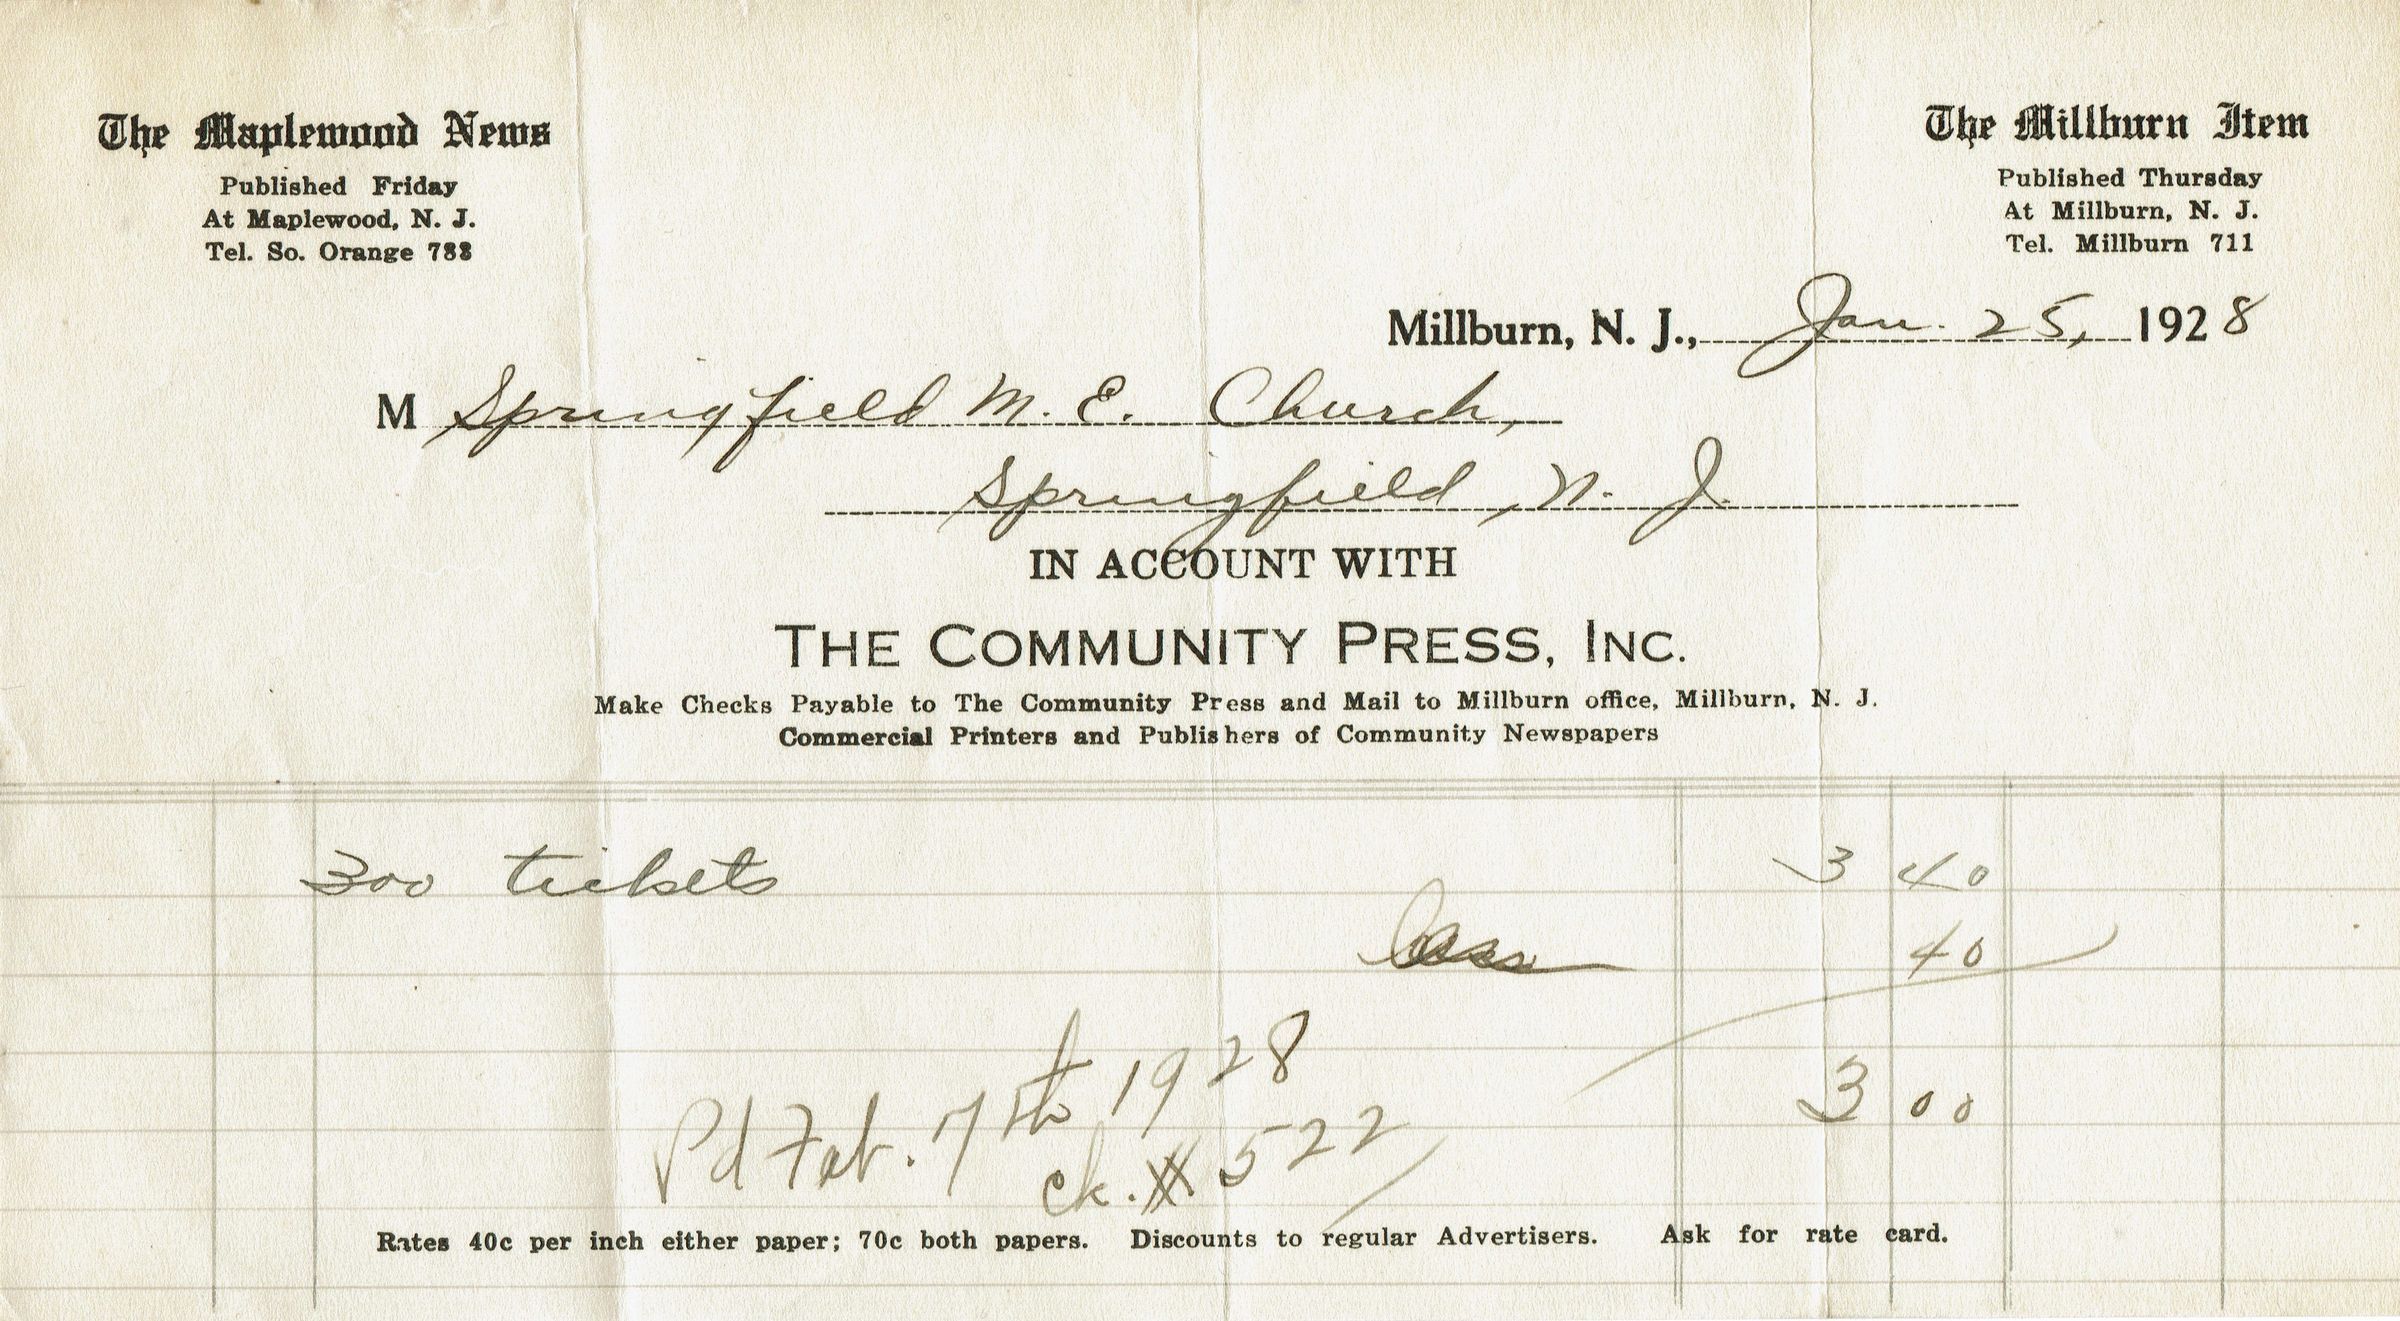 The Maplewood News
Published Friday
At Maplewood, N. J.
Tel. So. Orange
The Millburn Item
Published Thursday
At Millburn, N. J.
Tel. Millburn 711
Millburn, N. J., Jan. 25, 1928
M Springfield M. E. Church,
Springfield, N. J.
IN ACCOUNT WITH
THE COMMUNITY PRESS, INC.
Make Checks Payable to The Community Press and Mail to Millburn office, Millburn, N. J.
Commercial Printers and Publishers of Community Newspapers
300 tickets 3 40
Less 40
3 00
Pd Feb. 7th 1928
ck. # 522
Rates 40c per inch either paper; 70c both papers. Discounts to regular Advertisers. Ask for rate card.